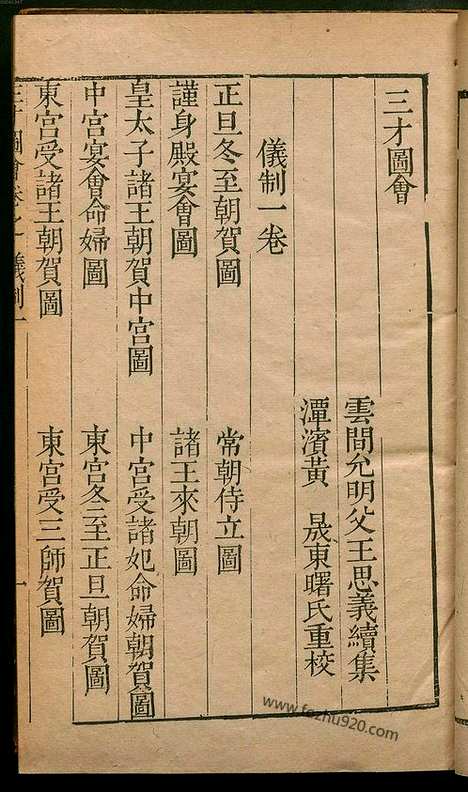 三才圖會
雲間允明父王思義續集
潭濱黃 晟東曙氏重校
儀制一卷
正旦冬至朝賀圖 常朝侍立圖
謹身殿宴會圖 諸王來朝圖
皇太子諸王朝賀中宮圖 中宮受諸妃命婦朝賀圖
中宮宴會命婦圖 東宮冬至正旦朝賀圖
東宮受諸王朝賀圖 東宮受三師賀圖
三才圖會 儀制一 一
www.fozhu920.com